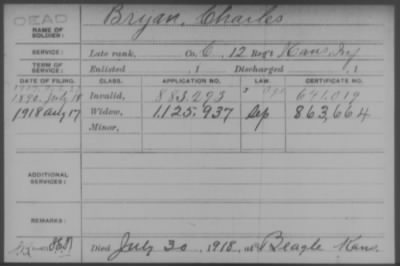 DEAD
NAME OF SOLDIER: Bryan, Charles
SERVICE: Late rank, Co. C, 12 Reg't Kans. Inf
TERM OF SERVICE: Enlisted , 1 Discharged , 1
DATE OF FILING. CLASS. APPLICATION NO. LAW. CERTIFICATE NO.
1890 July 18 Invalid, 883.293 " 641.019
1918 Aug 17 Widow, 1.125.937 Sep 863,664
Minor,
ADDITIONAL SERVICES:
REMARKS:
Died July 30, 1918, at Beagle Kans.